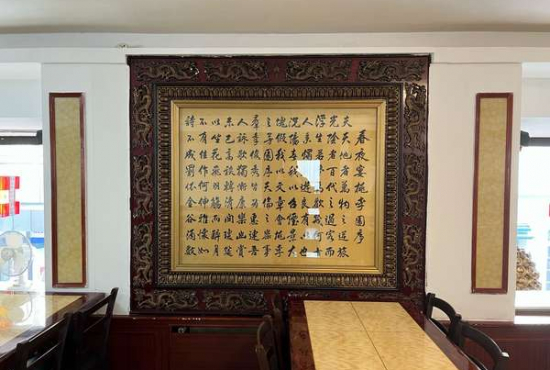 春夜宴桃李園序
夫天地者萬物之逆旅
光陰者百代之過客而
浮生若歡幾何
人秉燭良有以也
況陽春以景大
塊假我以文章會桃李
之芳園序天倫之樂事
羣季俊秀皆為惠連吾
人詠歌獨慚康樂幽賞
未已高談轉清開瓊筵
以坐花飛羽觴而醉月
不有佳作何伸雅懷如
詩不成罰依金谷酒數